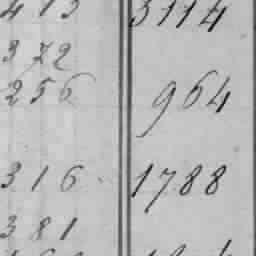 413 3114
372
256 964
316 1788
381